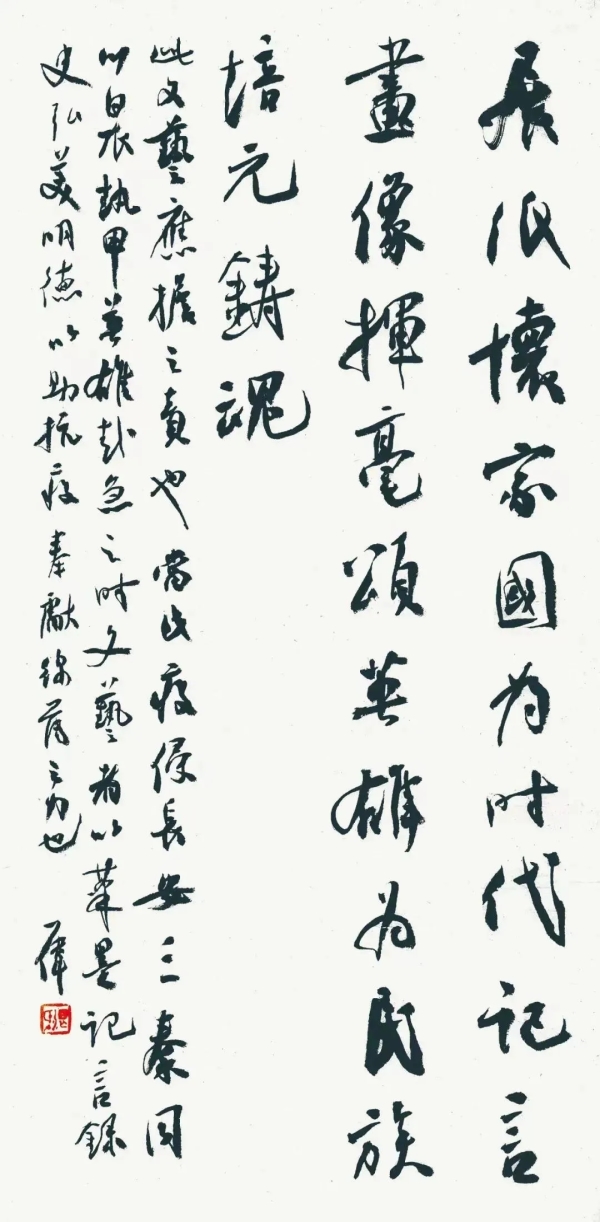 展纸懷家國为时代记言
畫像揮毫頌英雄为民族
培元鑄魂
此文藝應擔之責也當此疫侵長安三秦同
以白衣執甲英雄赴急之时文藝者以筆墨记言録
史弘美明德以助抗疫奉獻綿薄之力也
偉